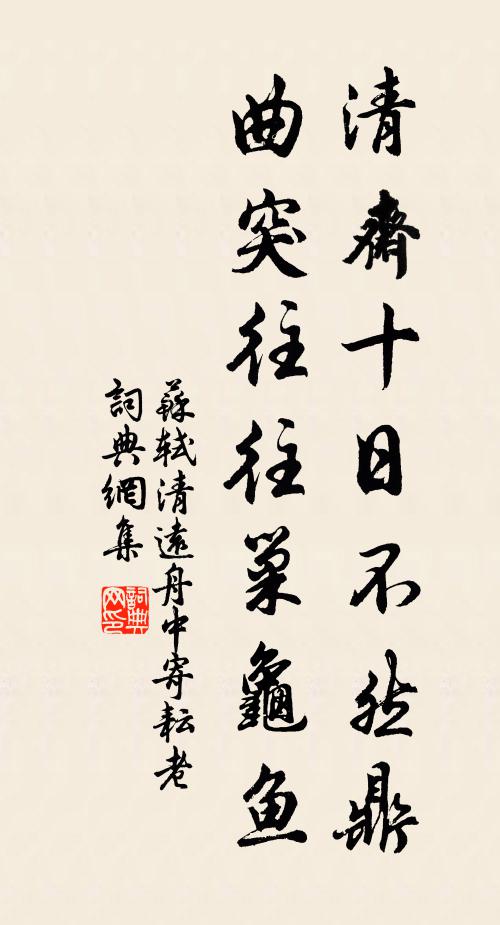 清齋十日不然鼎
曲突往往巢龜魚
蘇軾清遠舟中寄耘老
詞典網集
詞典网印